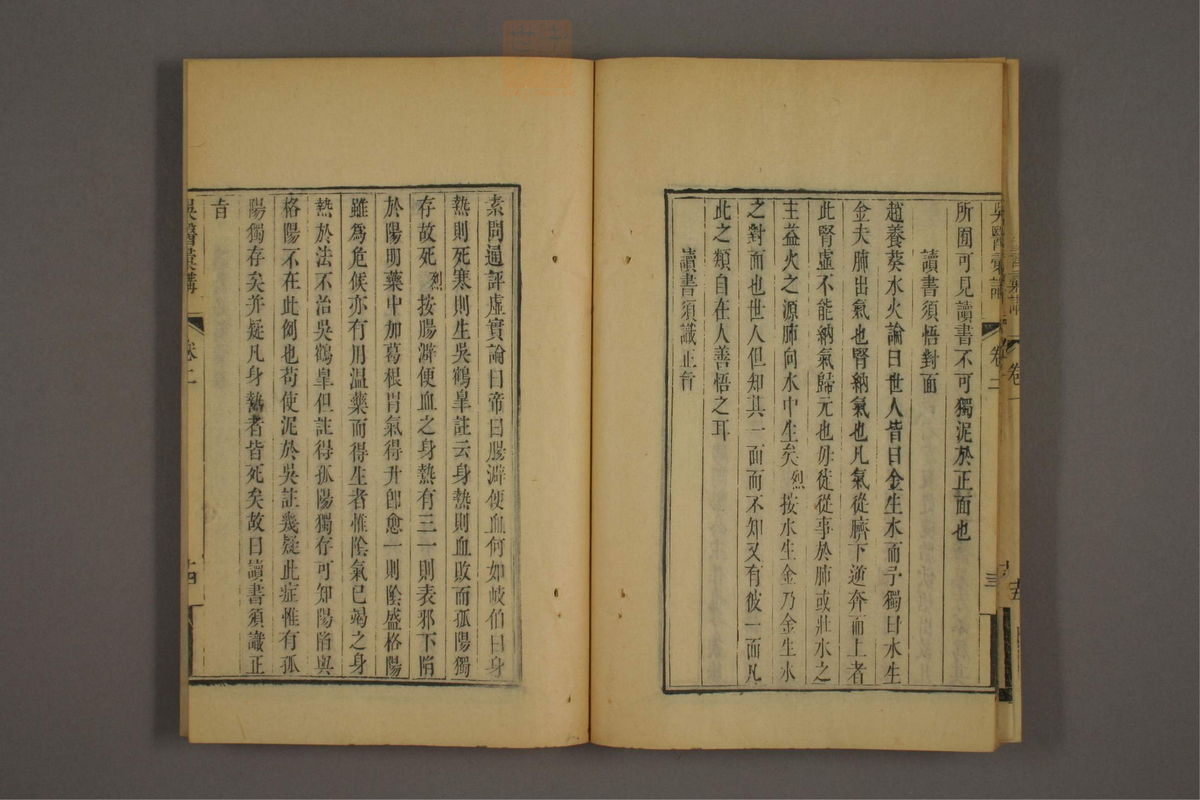 吳醫彙講
卷二
所囿可見讀書不可獨泥於正面也
讀書須悟對面
趙養葵水火論曰世人皆曰金生水而予獨曰水生
金夫肺出氣也腎納氣也凡氣從臍下逆奔而上者
此腎虛不能納氣歸元也毋徒從事於肺或壯水之
主益火之源肺向水中生矣烈按水生金乃金生水
之對面也世人但知其一面而不知又有彼一面凡
此之類自在人善悟之耳
讀書須識正旨
素問通評虛實論曰帝曰腸澼便血何如岐伯曰身
熱則死寒則生吳鶴皋註云身熱則血敗而孤陽獨
存故死烈按腸澼便血之身熱有三一則表邪下陷
於陽明藥中加葛根胃氣得升卽愈一則陰盛格陽
雖爲危候亦有用温藥而得生者惟陰氣已竭之身
熱於法不治吳鶴皋但註得孤陽獨存可知陽陷與
格陽不在此例也苟使泥於吳註幾疑此症惟有孤
陽獨存矣并疑凡身熱者皆死矣故曰讀書須識正
旨
吳醫彙講
卷二
十四